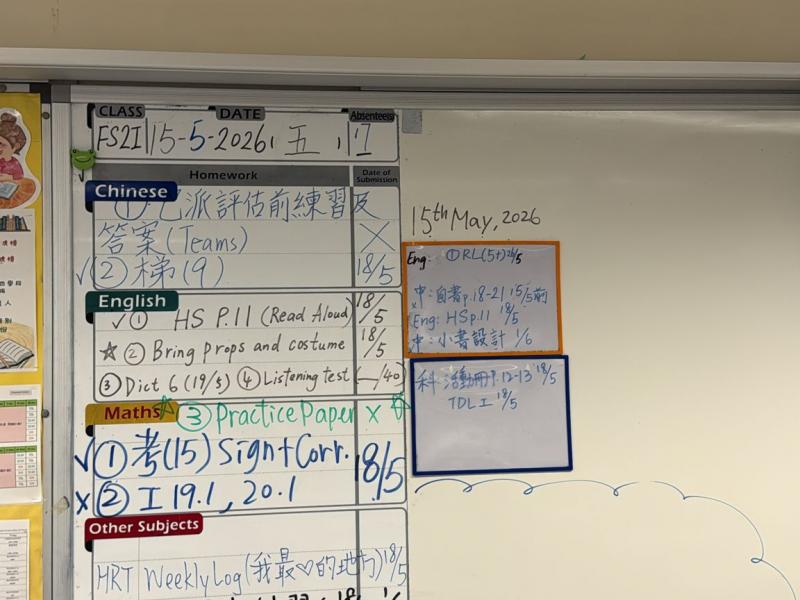 CLASS DATE Absentees
FS2I 15-5-2026, 五, 17
Homework Date of Submission
Chinese
① 已派評估前練習及
答案(Teams) X
✓② 梯(9) 18/5
English
✓① HS P.11 (Read Aloud) 18/5
☆② Bring props and costume 18/5
③ Dict 6 (19/5) ④ Listening test (__/40)
Maths ☆ ③ Practice Paper X
✓① 考(15) Sign+Corr. 18/5
X② I 19.1, 20.1
Other Subjects
HRT Weekly Log (我最♡的地方) 18/5
15th May, 2026
Eng: ① RL(5+) /5
中: 自書p.18-21 15/5前
Eng: HSp.11 18/5
中: 小書設計 1/6
科 活動冊P.12-13 18/5
TDL I 18/5